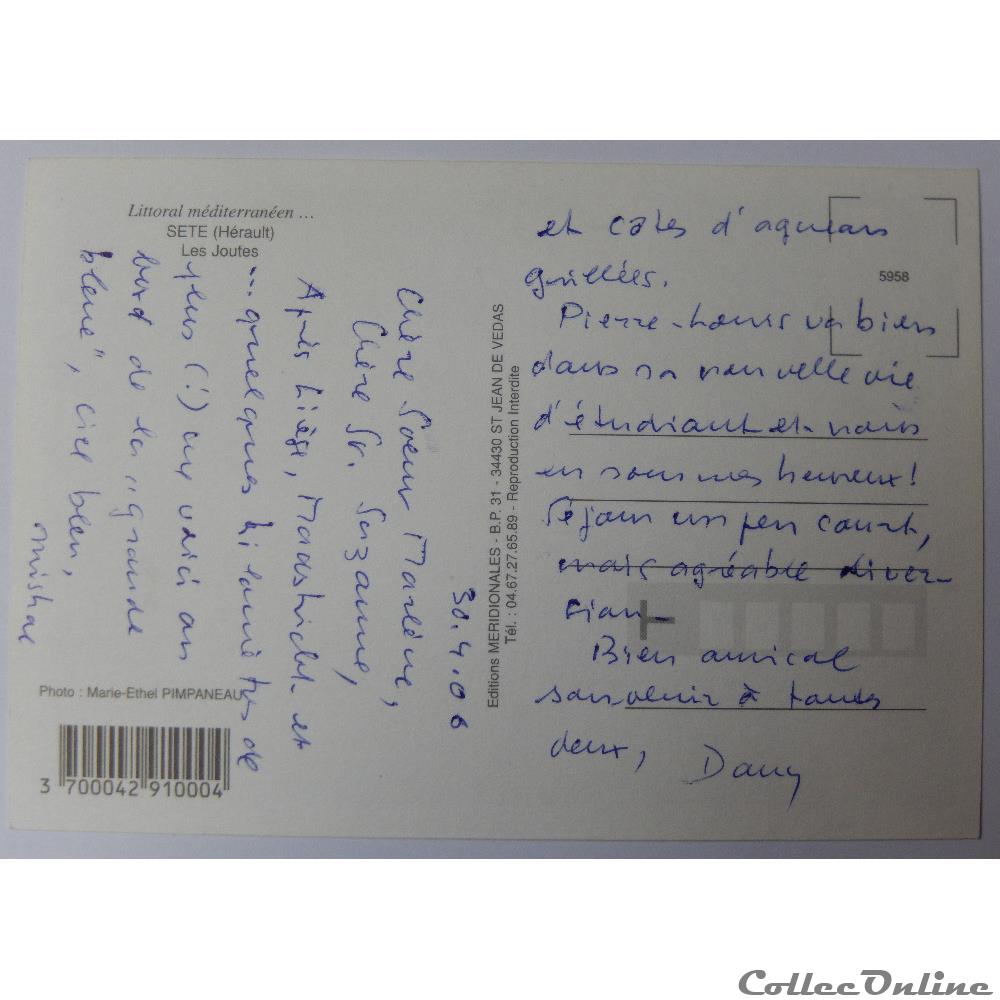 Littoral méditerranéen ...
SETE (Hérault)
Les Joutes
30.4.06
Chère Soeur Marlène,
Chère Sr. Suzanne,
Après Liège, Maastricht et
... quelques kilomètres de
plus (!) me voici au
bord de la "grande
bleue", ciel bleu,
mistral
et côtes d'agneau
grillées.
Pierre-Louis va bien
dans sa nouvelle vie
d'étudiant et nous
en sommes heureux!
Séjour un peu court,
mais agréable diver-
sion_
Bien amical
souvenir à toutes
deux, Dany
5958
Editions MERIDIONALES - B.P. 31 - 34430 ST JEAN DE VEDAS
Tél. : 04.67.27.65.89 - Reproduction Interdite
Photo : Marie-Ethel PIMPANEAU
3 700042 910004
CollecOnline